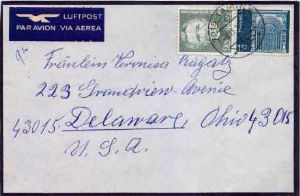 LUFTPOST
PAR AVION VIA AEREA
Fräulein Veronica Ragatz
223 Grandview Avenue
43015 Delaware, Ohio 43015
U.S.A.